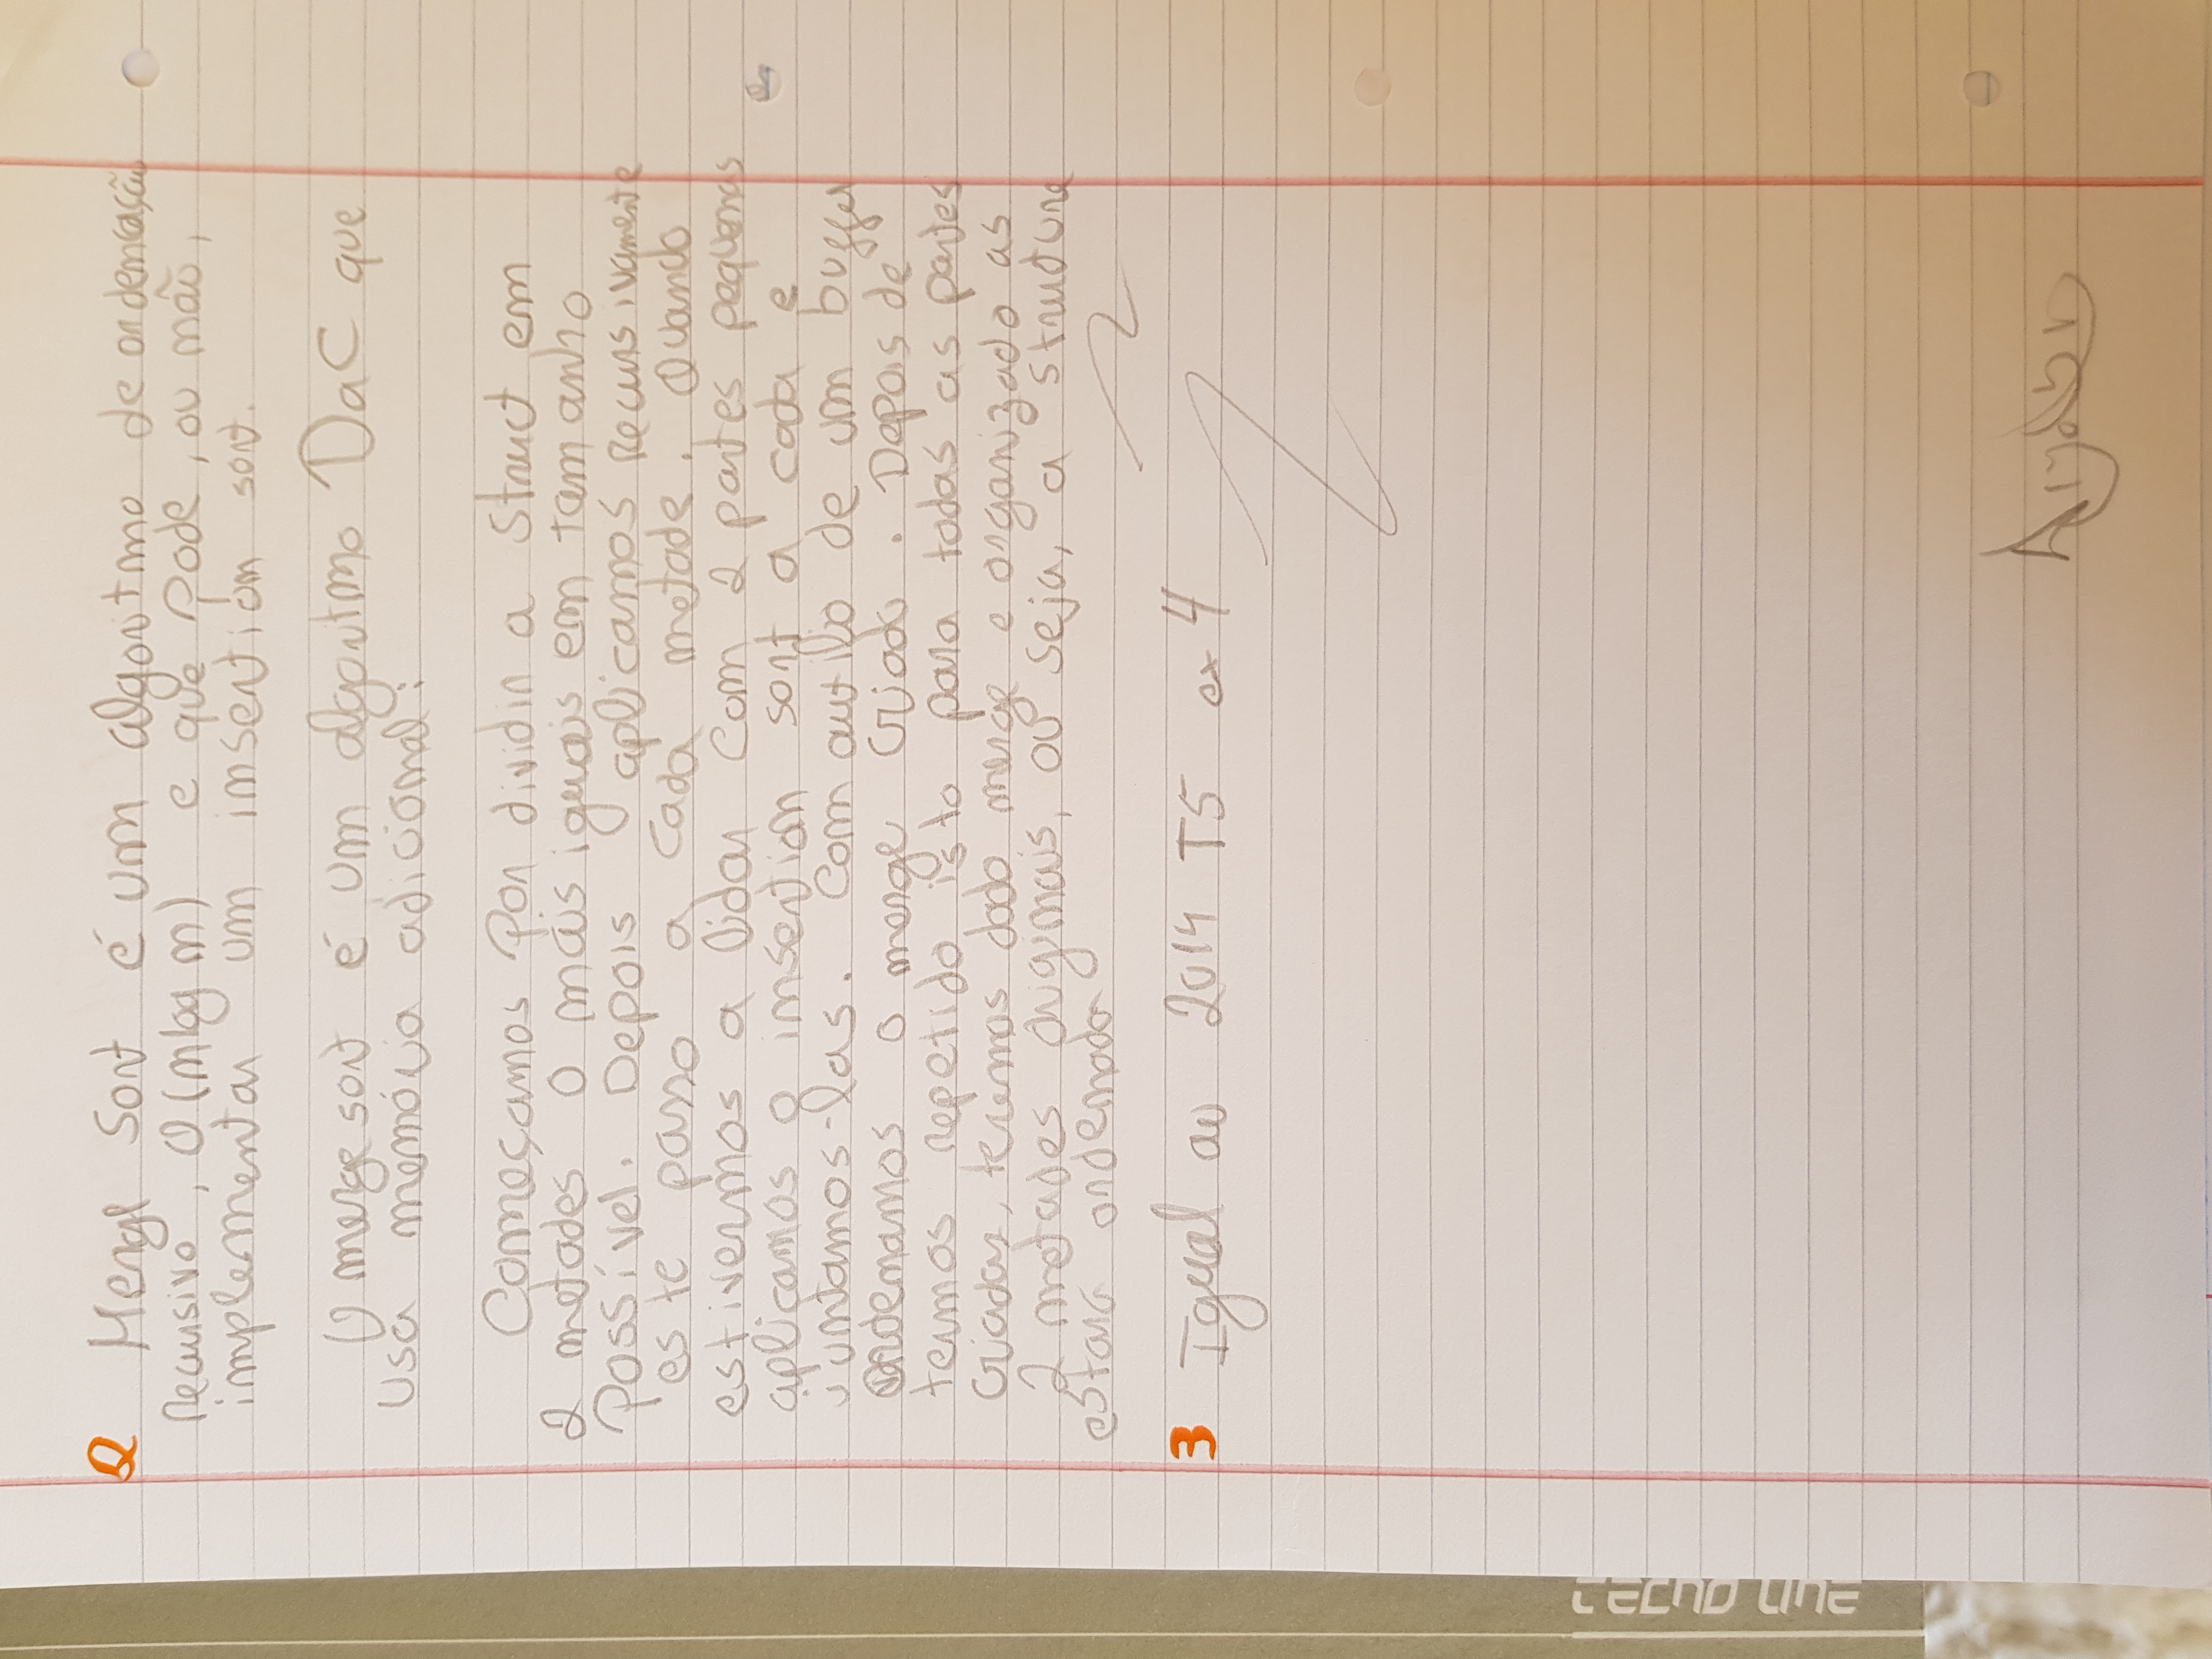 2 Merge Sort é um algoritmo de ordenação
recursivo, O(n log n) e que pode, ou não,
implementar um insertion sort.
O merge sort é um algoritmo DaC que
usa memória adicional:
Começamos por dividir a struct em
2 metades o mais iguais em tamanho
possível. Depois aplicamos recursivamente
este passo a cada metade. Quando
estivermos a lidar com 2 partes pequenas
aplicamos o insertion sort a cada e
juntamos-las. Com auxílio de um buffer
ordenamos o merge criado. Depois de
termos repetido isto para todas as partes
criadas, teremos dado merge e organizado as
2 metades originais, ou seja, a structure
estará ordenada
3 Igual ao 2014 T5 ex 4